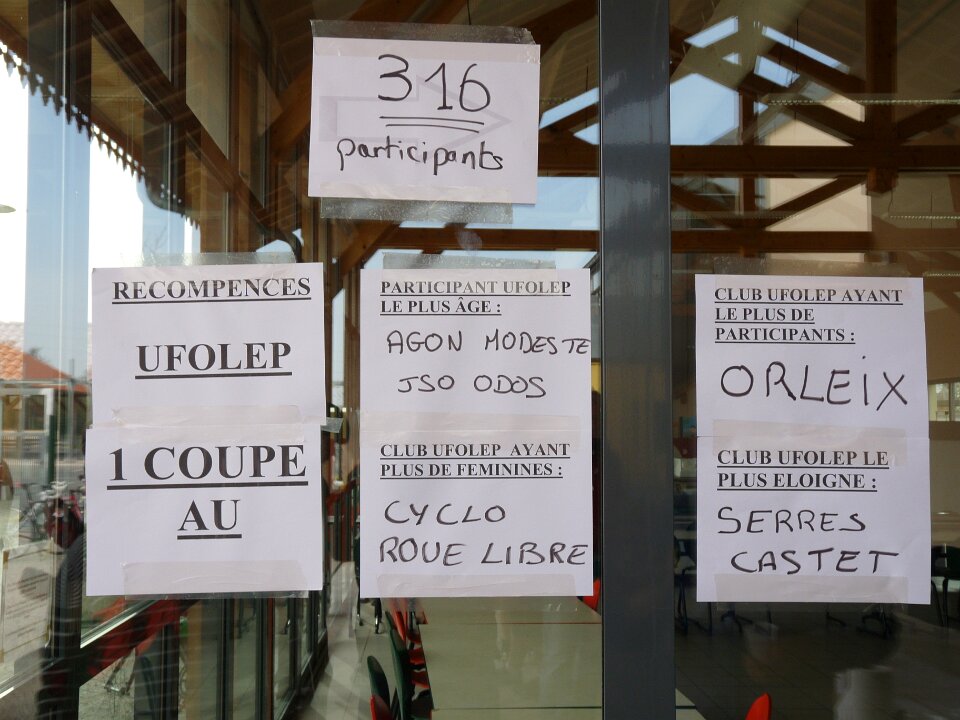 316
participants
RECOMPENCES
UFOLEP
1 COUPE
AU
PARTICIPANT UFOLEP
LE PLUS ÂGE :
AGON MODESTE
JSO ODOS
CLUB UFOLEP AYANT
PLUS DE FEMININES :
CYCLO
ROUE LIBRE
CLUB UFOLEP AYANT
LE PLUS DE
PARTICIPANTS :
ORLEIX
CLUB UFOLEP LE
PLUS ELOIGNE :
SERRES
CASTET